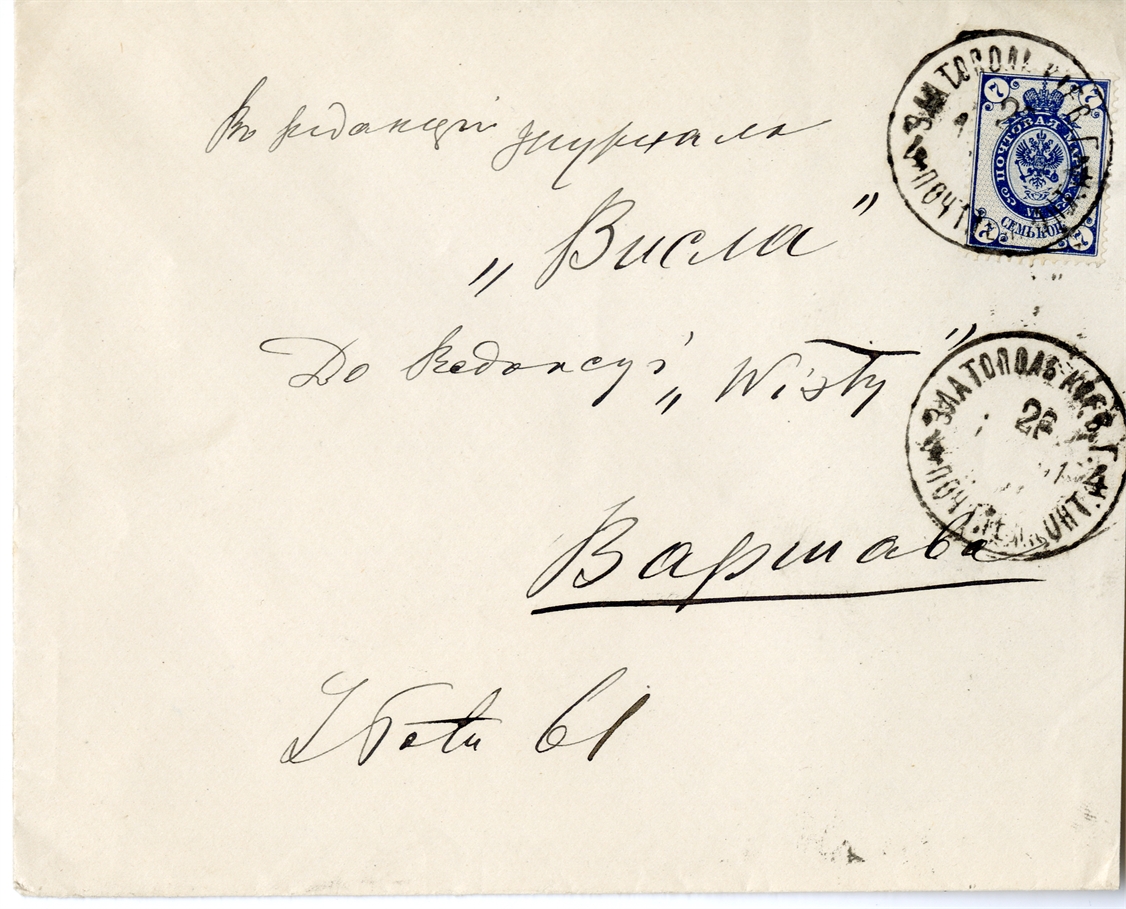 Въ редакцію журнала
„Висла“
Do Redakcyi „Wisły”
Варшава
Złota 61
ЗЛАТОПОЛЬ КІЕВ. Г.
ПОЧТ.
2
7
7
7
7
ПОЧТОВАЯ МАРКА
СЕМЬ КОП.
ЗЛАТОПОЛЬ КІЕВ. Г.
ПОЧТ. ТЕЛ. КОНТ.
26